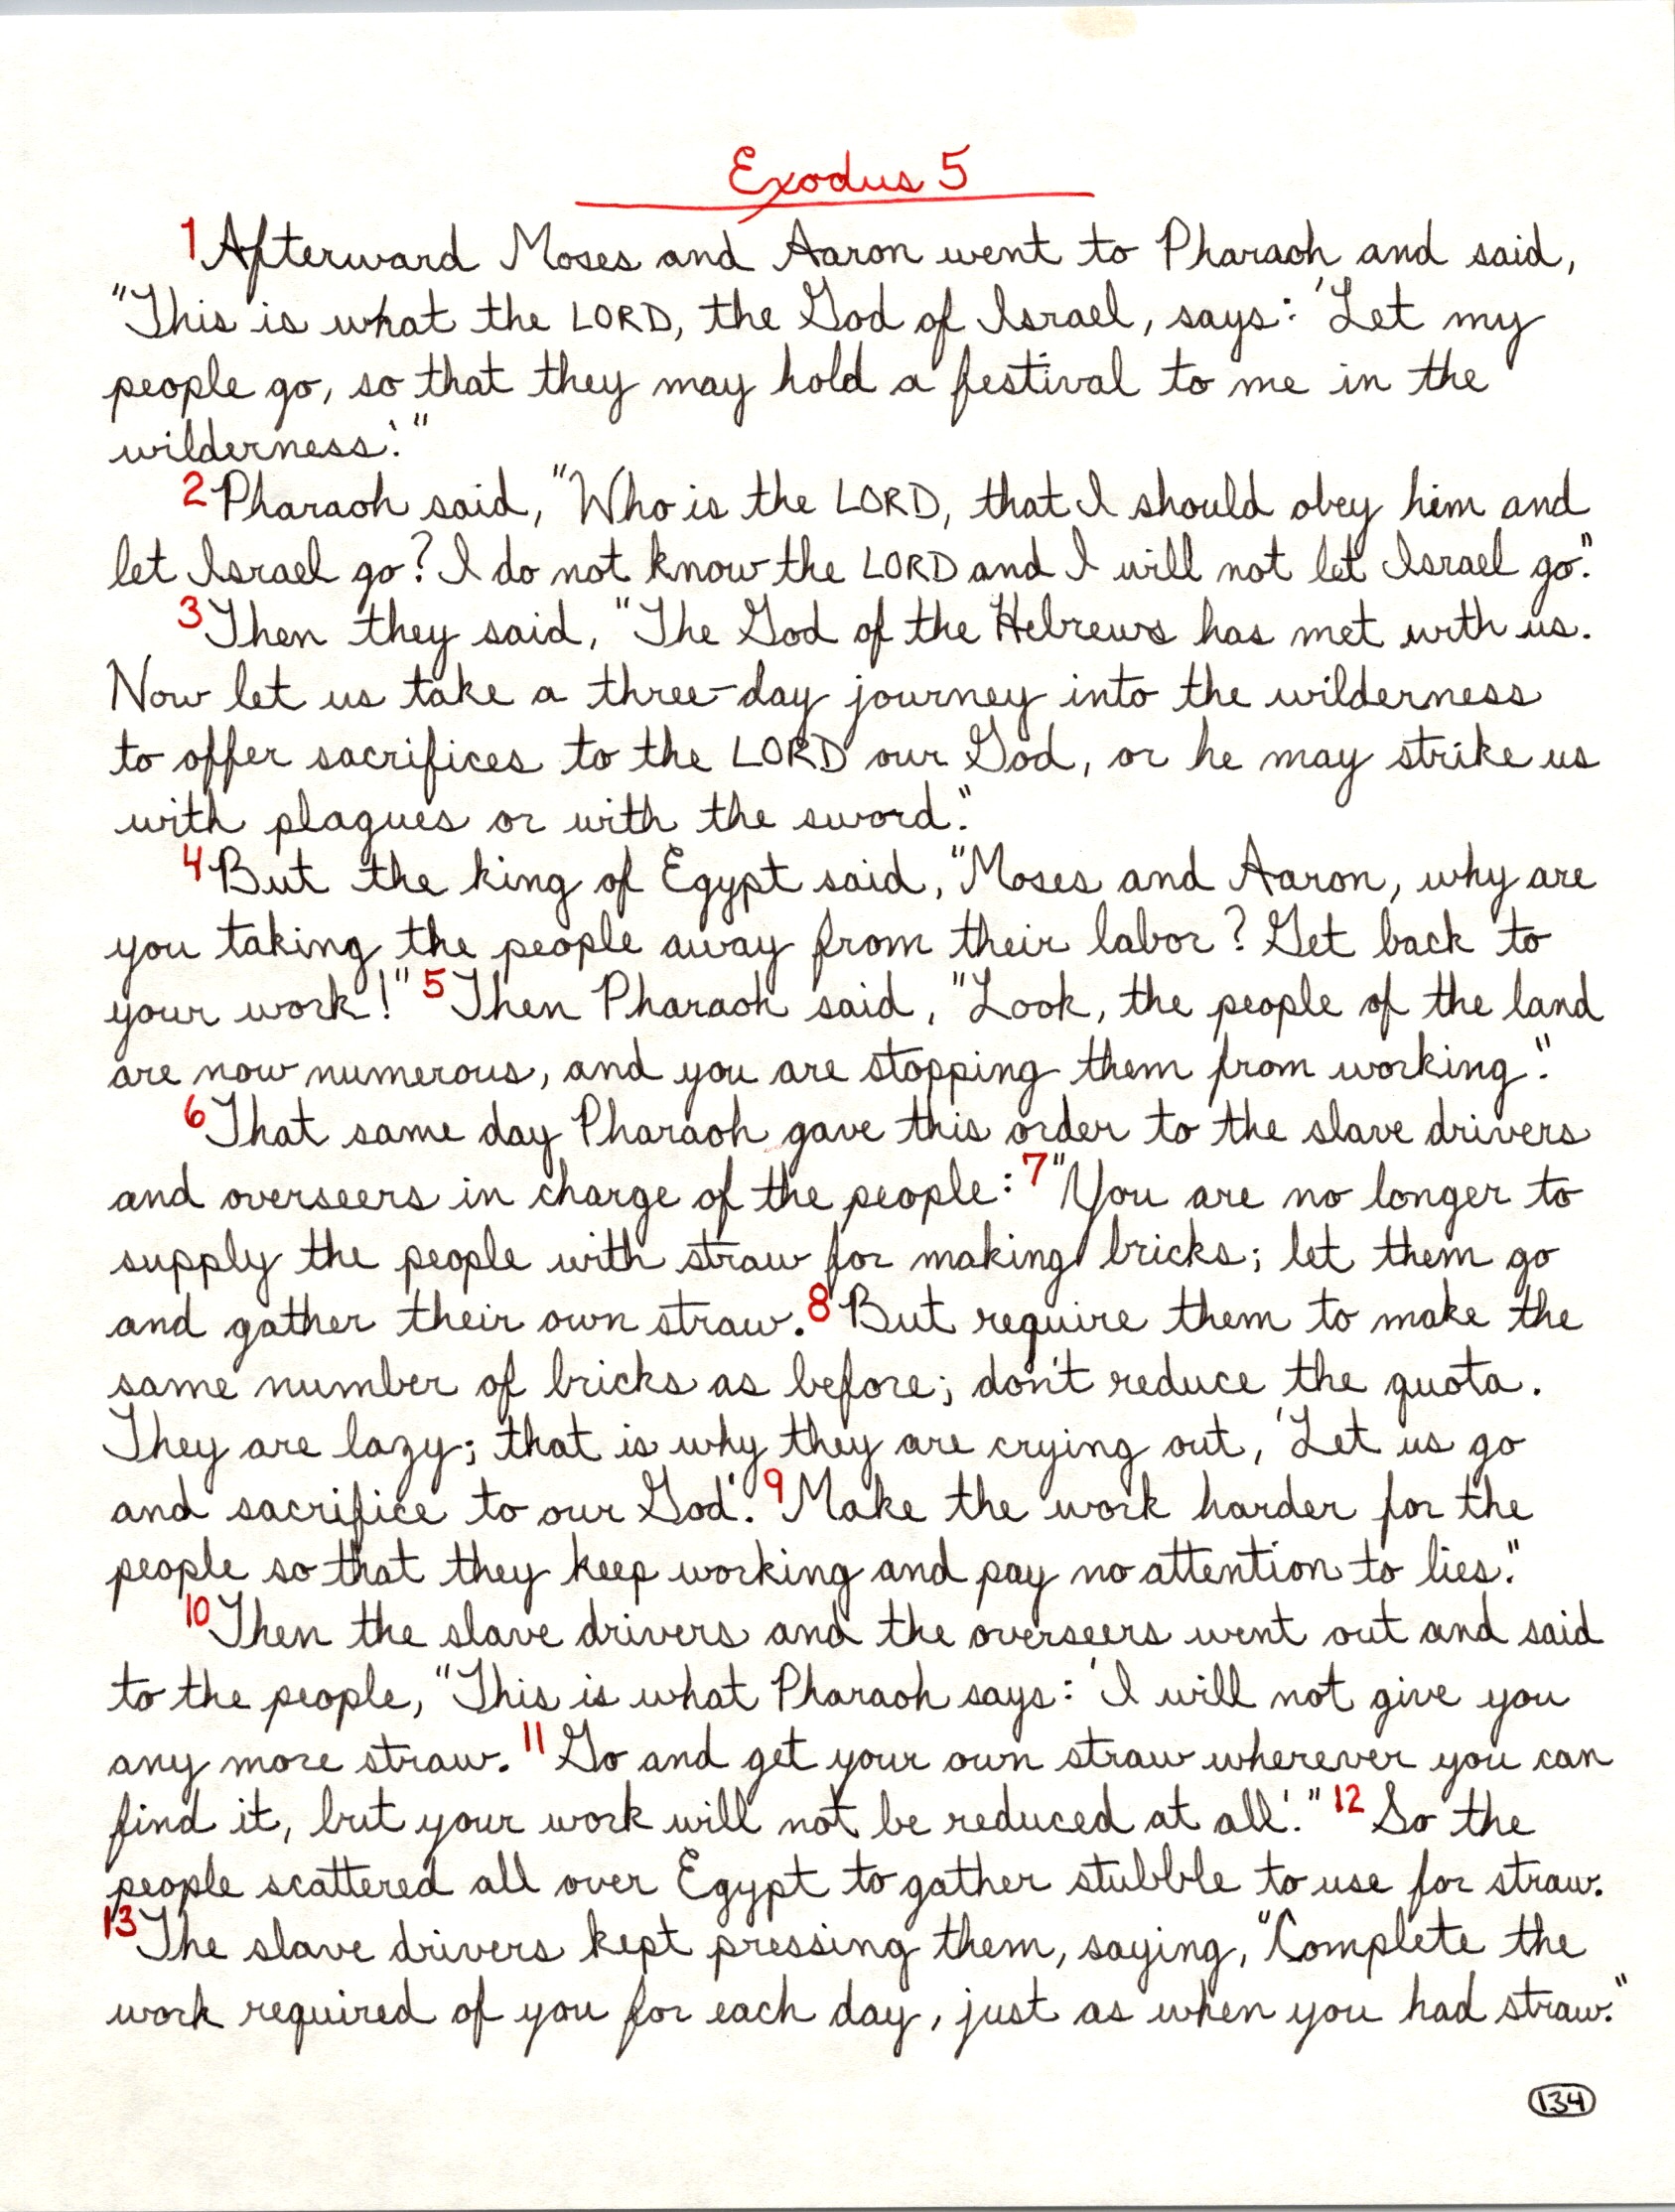 Exodus 5
1 Afterward Moses and Aaron went to Pharaoh and said,
"This is what the LORD, the God of Israel, says: 'Let my
people go, so that they may hold a festival to me in the
wilderness.'"
2 Pharaoh said, "Who is the LORD, that I should obey him and
let Israel go? I do not know the LORD and I will not let Israel go."
3 Then they said, "The God of the Hebrews has met with us.
Now let us take a three-day journey into the wilderness
to offer sacrifices to the LORD our God, or he may strike us
with plagues or with the sword."
4 But the king of Egypt said, "Moses and Aaron, why are
you taking the people away from their labor? Get back to
your work!" 5 Then Pharaoh said, "Look, the people of the land
are now numerous, and you are stopping them from working."
6 That same day Pharaoh gave this order to the slave drivers
and overseers in charge of the people: 7 "You are no longer to
supply the people with straw for making bricks; let them go
and gather their own straw. 8 But require them to make the
same number of bricks as before; don't reduce the quota.
They are lazy; that is why they are crying out, 'Let us go
and sacrifice to our God.' 9 Make the work harder for the
people so that they keep working and pay no attention to lies."
10 Then the slave drivers and the overseers went out and said
to the people, "This is what Pharaoh says: 'I will not give you
any more straw. 11 Go and get your own straw wherever you can
find it, but your work will not be reduced at all.'" 12 So the
people scattered all over Egypt to gather stubble to use for straw.
13 The slave drivers kept pressing them, saying, "Complete the
work required of you for each day, just as when you had straw."
134